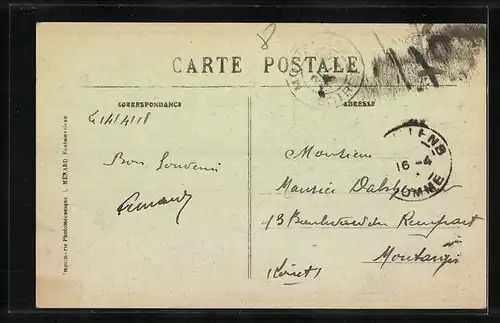 8
CARTE POSTALE
CORRESPONDANCE
ADRESSE
Le 14/4/18
Bon Souvenir
Armand
Monsieur
Maurice
13 Boulevard du Rempart
Montargis
(Loiret)
16-4
SOMME
Imprimerie Photomécanique L. MÉNARD Fontainebleau